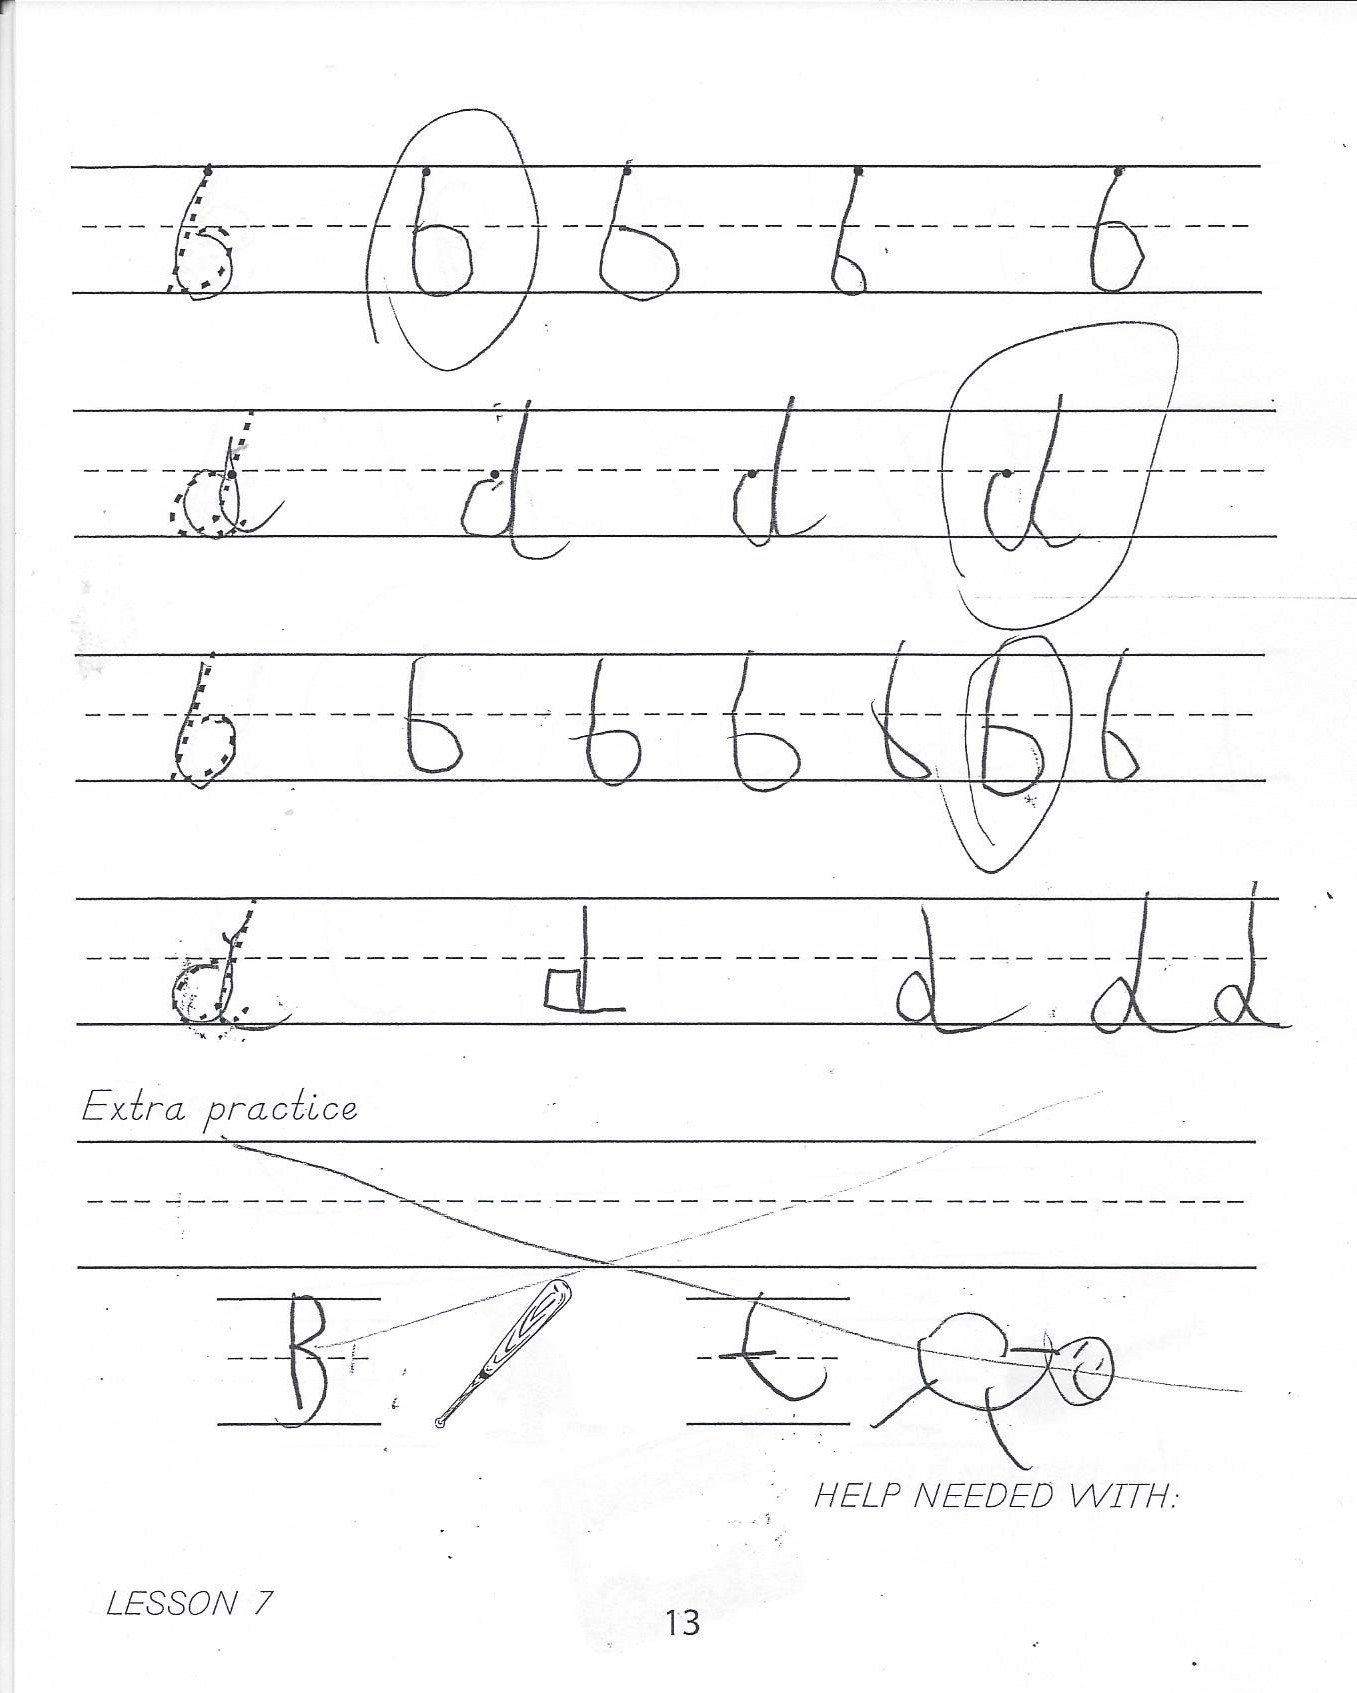 b b b b b
d d d d
b b b b b b b
d d d d d
Extra practice
B t
HELP NEEDED WITH:
LESSON 7
13